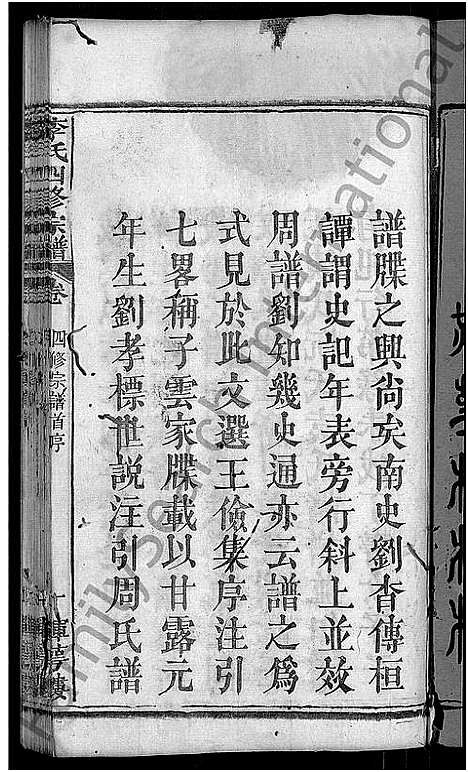 譜牒之興尙矣南史劉杳傳桓
譚謂史記年表旁行斜上並效
周譜劉知幾史通亦云譜之爲
式見於此文選王儉集序注引
七畧稱子雲家牒載以甘露元
年生劉孝標世説注引周氏譜
李氏四修宗譜 卷 四修宗譜首序
FamilySearch International